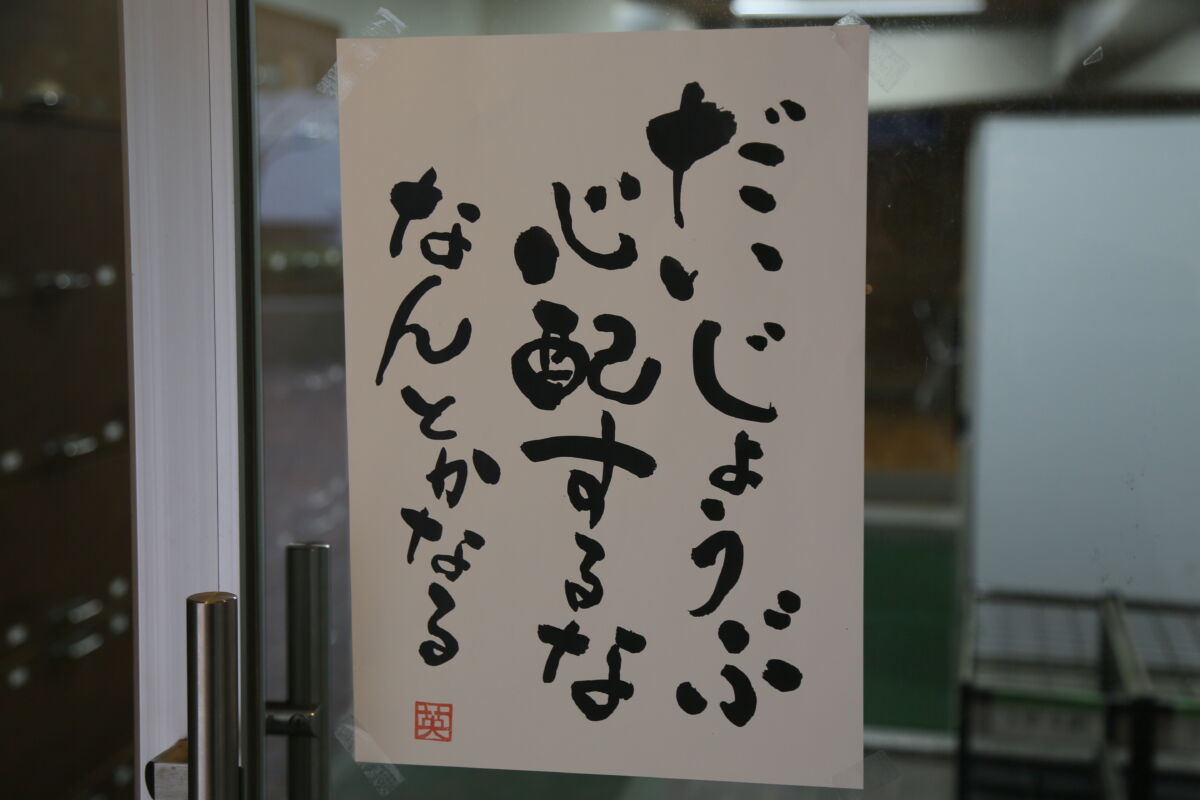 だいじょうぶ
心配するな
なんとかなる
英